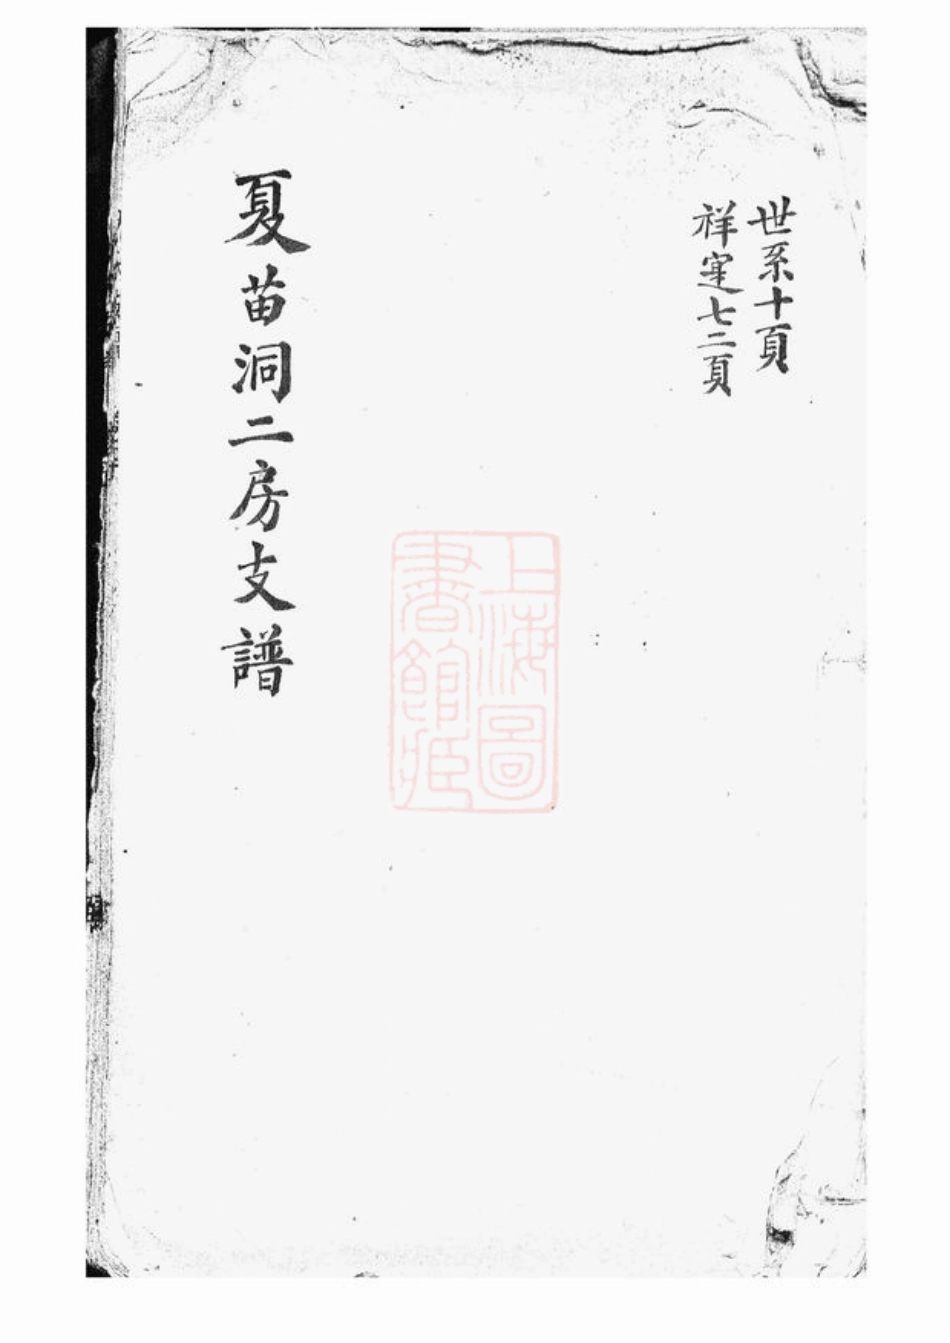 世系十頁
祥寔七二頁
夏苗洞二房支譜
上海圖
書館藏